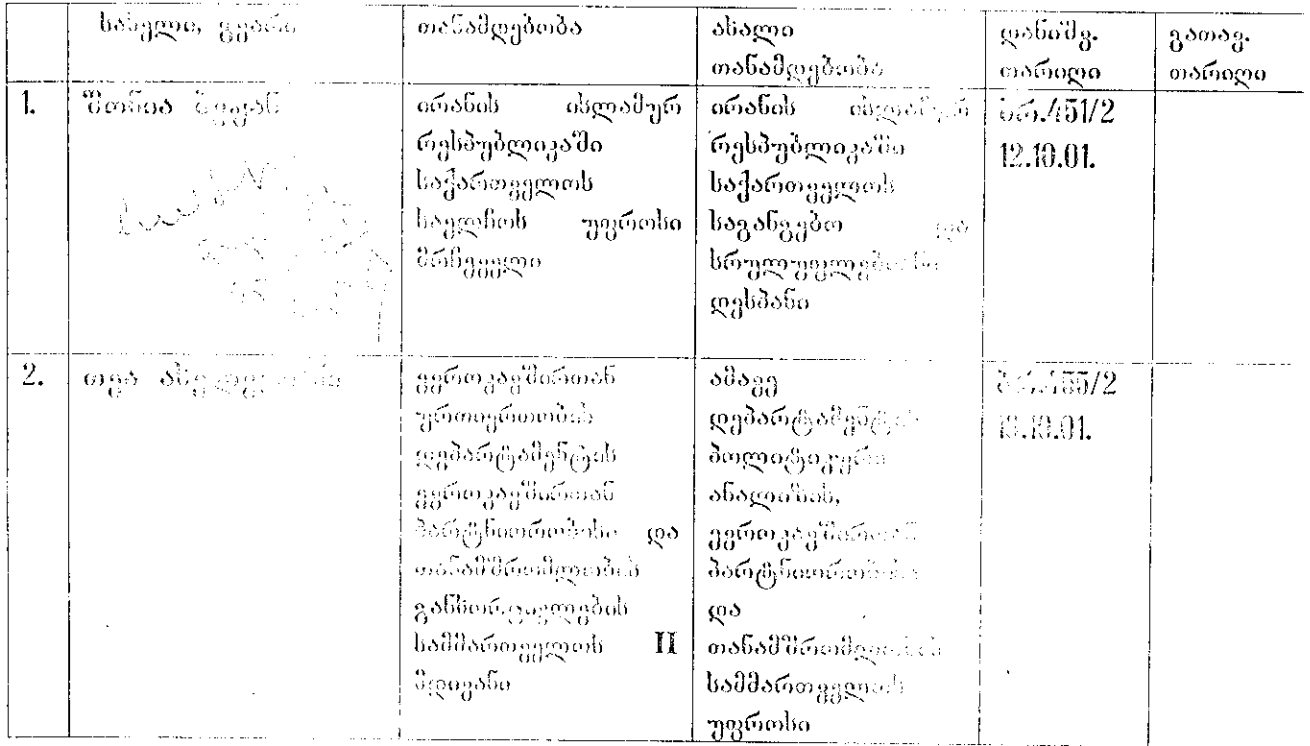 სახელი, გვარი
თანამდებობა
ახალი
თანამდებობა
დანიშვ.
თარიღი
გათავ.
თარიღი
1.
შონია
ირანის ისლამურ
რესპუბლიკაში
საქართველოს
საელჩოს უფროსი
მრჩეველი
ირანის ისლამურ
რესპუბლიკაში
საქართველოს
საგანგებო და
სრულუფლებიანი
დესპანი
ბრ.451/2
12.10.01.
2.
თეა
ევროკავშირთან
ურთიერთობის
დეპარტამენტის
ევროკავშირთან
პარტნიორობისა და
თანამშრომლობის
სამმართველოს II
მდივანი
ამავე
დეპარტამენტის
პოლიტიკური
ანალიზის,
ევროკავშირთან
პარტნიორობისა
და
თანამშრომლობის
სამმართველოს
უფროსი